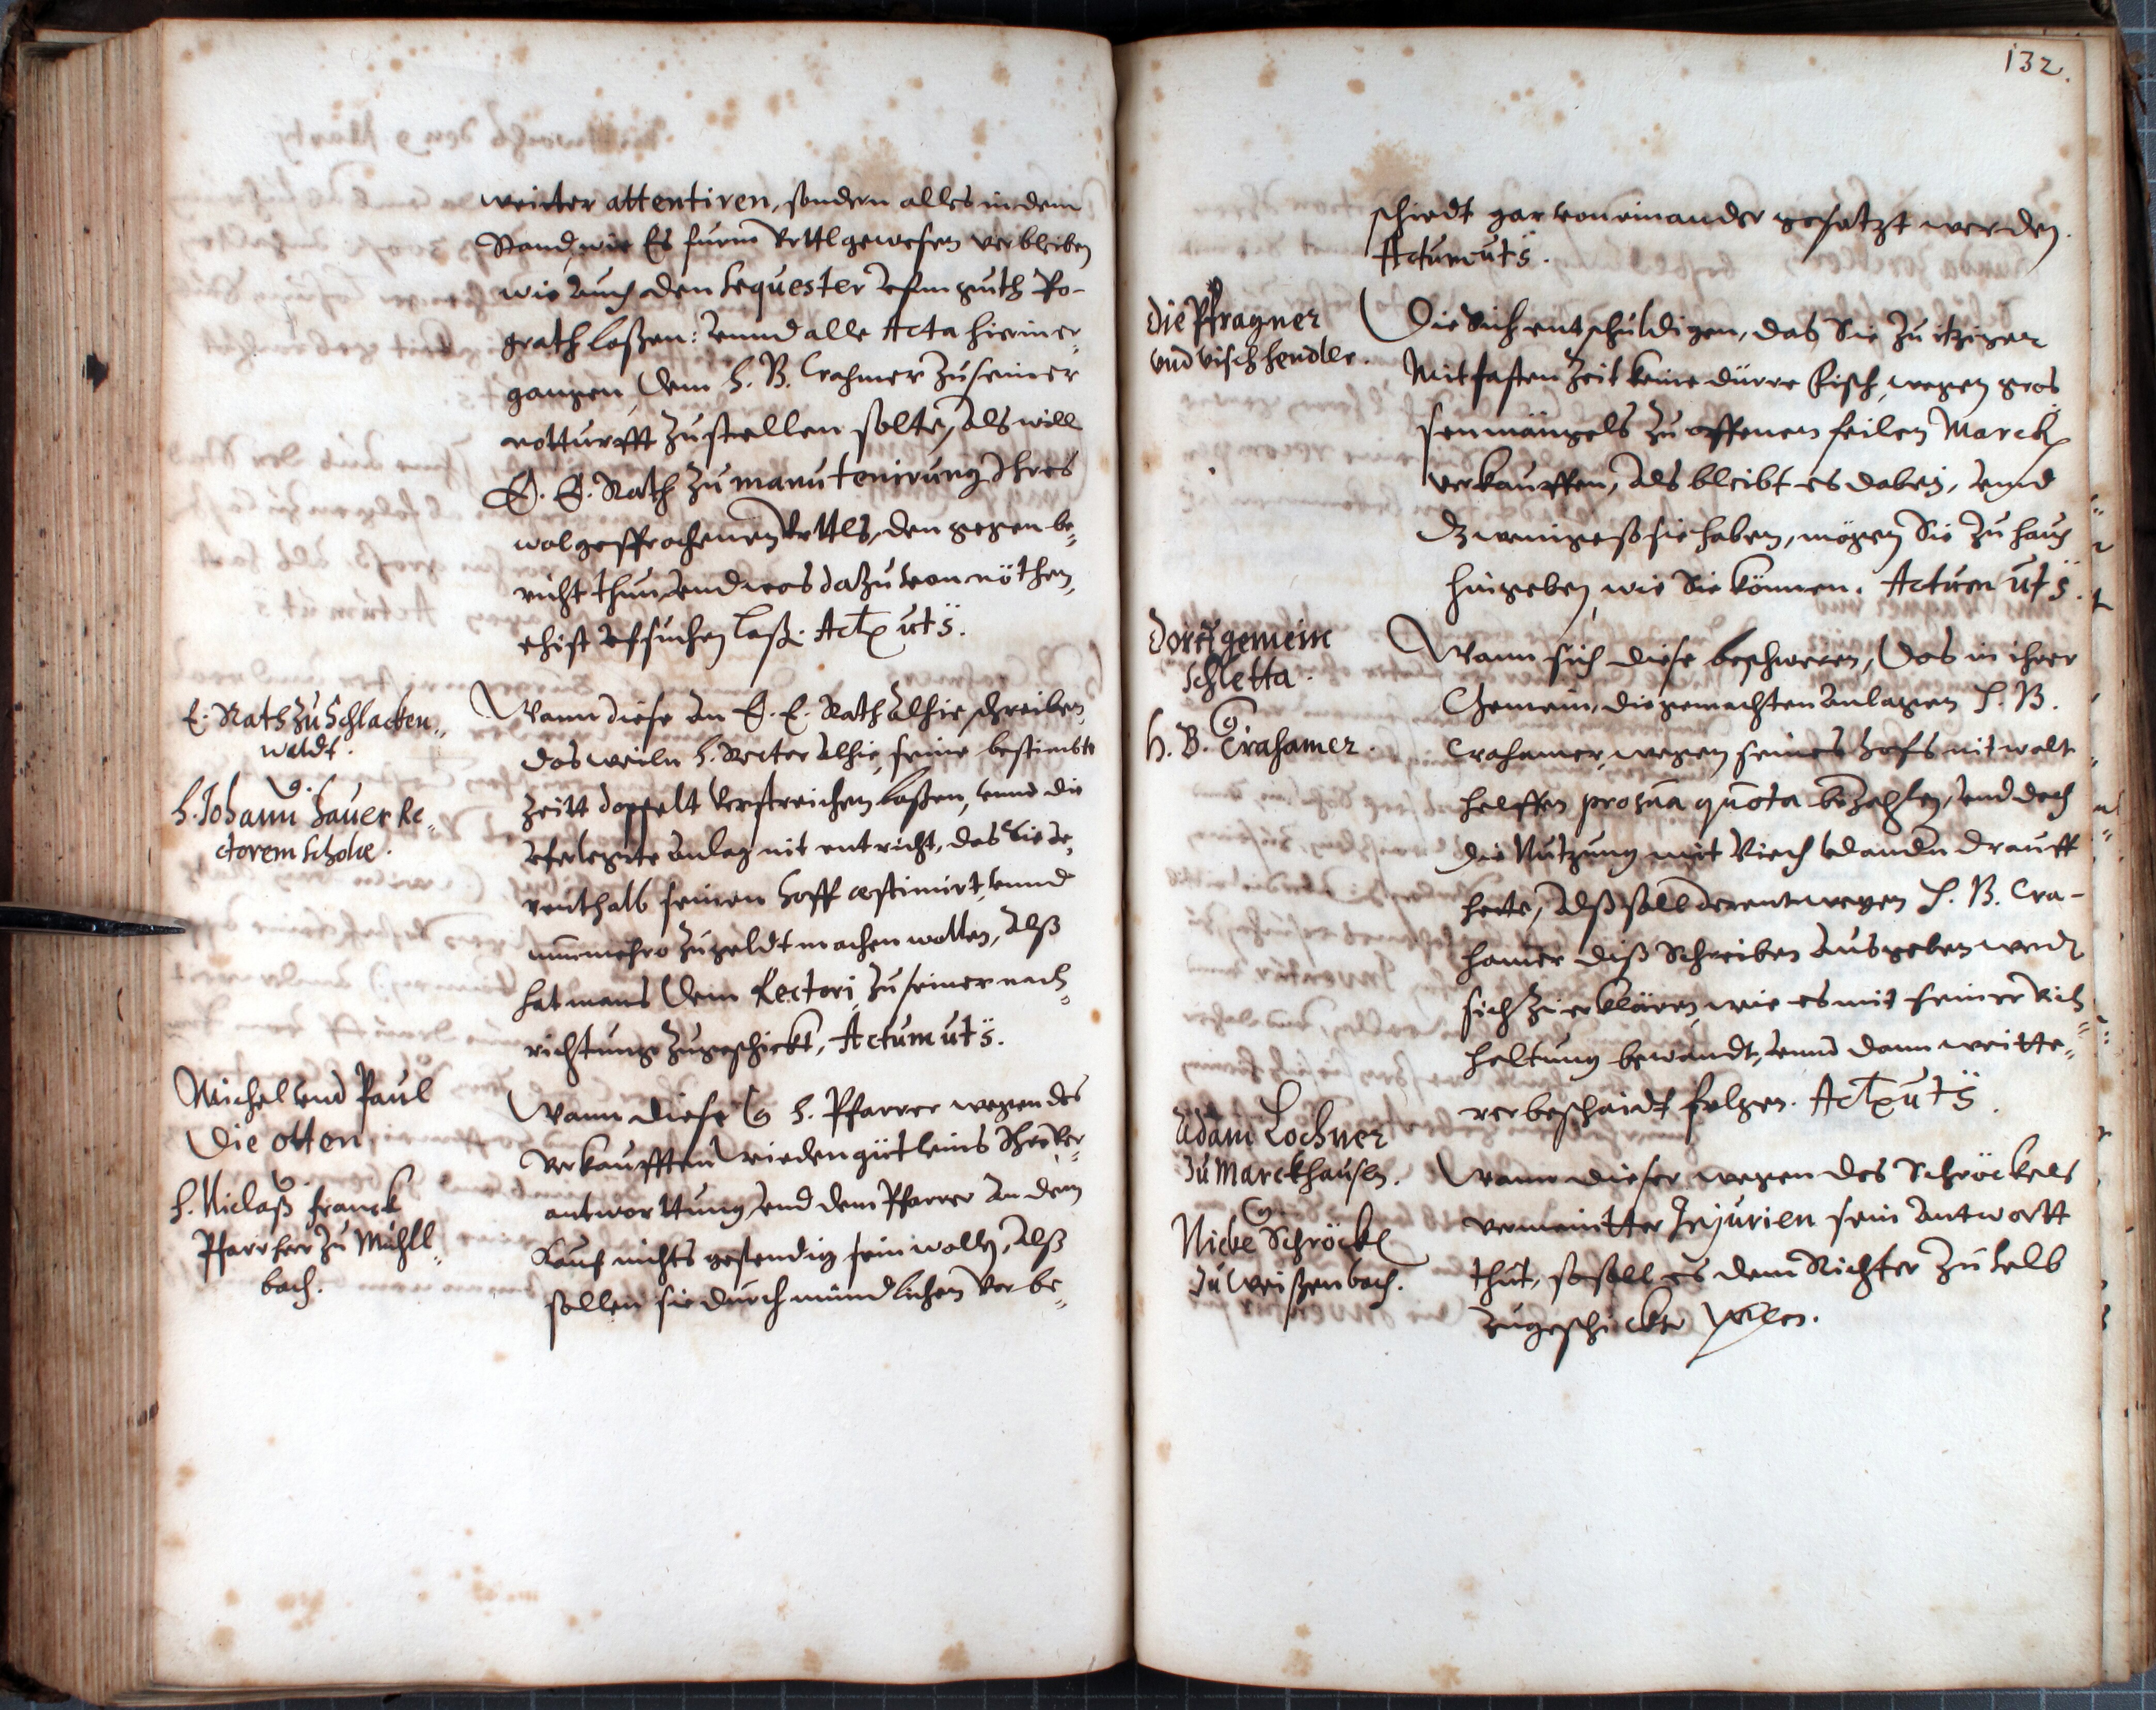 weitter attentiren, sondern alles in dem
Stand, wie Es furm Vrttl gewesen verbleiben
wie auch den Sequester vfm guth Po-
grath laßen: vnnd alle Acta hierin er-
gangen, dem H. B. Crahmer zu seiner
notturfft zustellen solte, Als will
E. E. Rath zu manutenirung Ihres
wolgesprochenen Vrttls, den gegen be-
richt thun, vnd was dazu von nöthen,
ehist vfsuchen laß. Actum ut s.
E. Rath zu Schlacken-
waldt.
H. Johann Sauer Re-
ctorem Schole.
Wann diese an E. E. Rath alhie schreiben,
das weiln H. Rector alhie, seine bestimbte
Zeitt doppelt verstreichen laßen, vnnd die
vferlegte anlag nit entricht, das Sie de-
renthalb seinen Hoff æstimirt, vnnd
nunmehro zu geldt machen wollen, Alß
hat mans dem Rectori zu seiner nach-
richtung zugeschickt, Actum ut s.
Michel vnd Paul
Die otten
H. Niclaß Franck
Pfarrherr zu Mühll-
bach.
Wann diese H. Pfarrer wegen des
verkaufften Riedengütleins
antworttung, vnd dem Pfarrer an dem
Kauf nichts gestendig sein wollen, Alß
sollen sie durch mündlichen Vorbe-
132.
schiedt gar voneinander gesetzt werden.
Actum ut s.
Die Pfragner
vnd vischhendler.
Die Sich entschuldigen, das Sie zu itziger
Mitfasten Zeit keine dürre Fisch, wegen gros
sen mangels zu offenen feilen Marck
verkauffen, Als bleibt es dabei, vnnd
dz wenigeß sie haben, mögen Sie zu haus
hingeben, wie Sie können. Actum ut s.
Dorffgemein
Schletta.
H. B. Crahamer.
Wann sich diese beschweren, das in ihrer
Gemein, die gemachten anlagen H. B.
Crahamer, wegen seines Hofs nit wolt
helffen pro sua quota bezahlen, vnd doch
die Nutzung mit Viech drauff
hette, Alß soll derentwegen H. B. Cra-
hamer diß Schreiben
sich zu erklären, wie es mit seiner Vich-
haltung bewandt, vnnd dann weitte-
rer bescheidt folgen. Actum ut s.
Adam Lochner
zu Marckhausen.
Nickel Schröckl
zu Weißenbach.
Wann dieser wegen des Schröckels
vermeintter Injurien sein antwortt
thut, so soll es dem Richter zu Selb
zugeschickt werden.